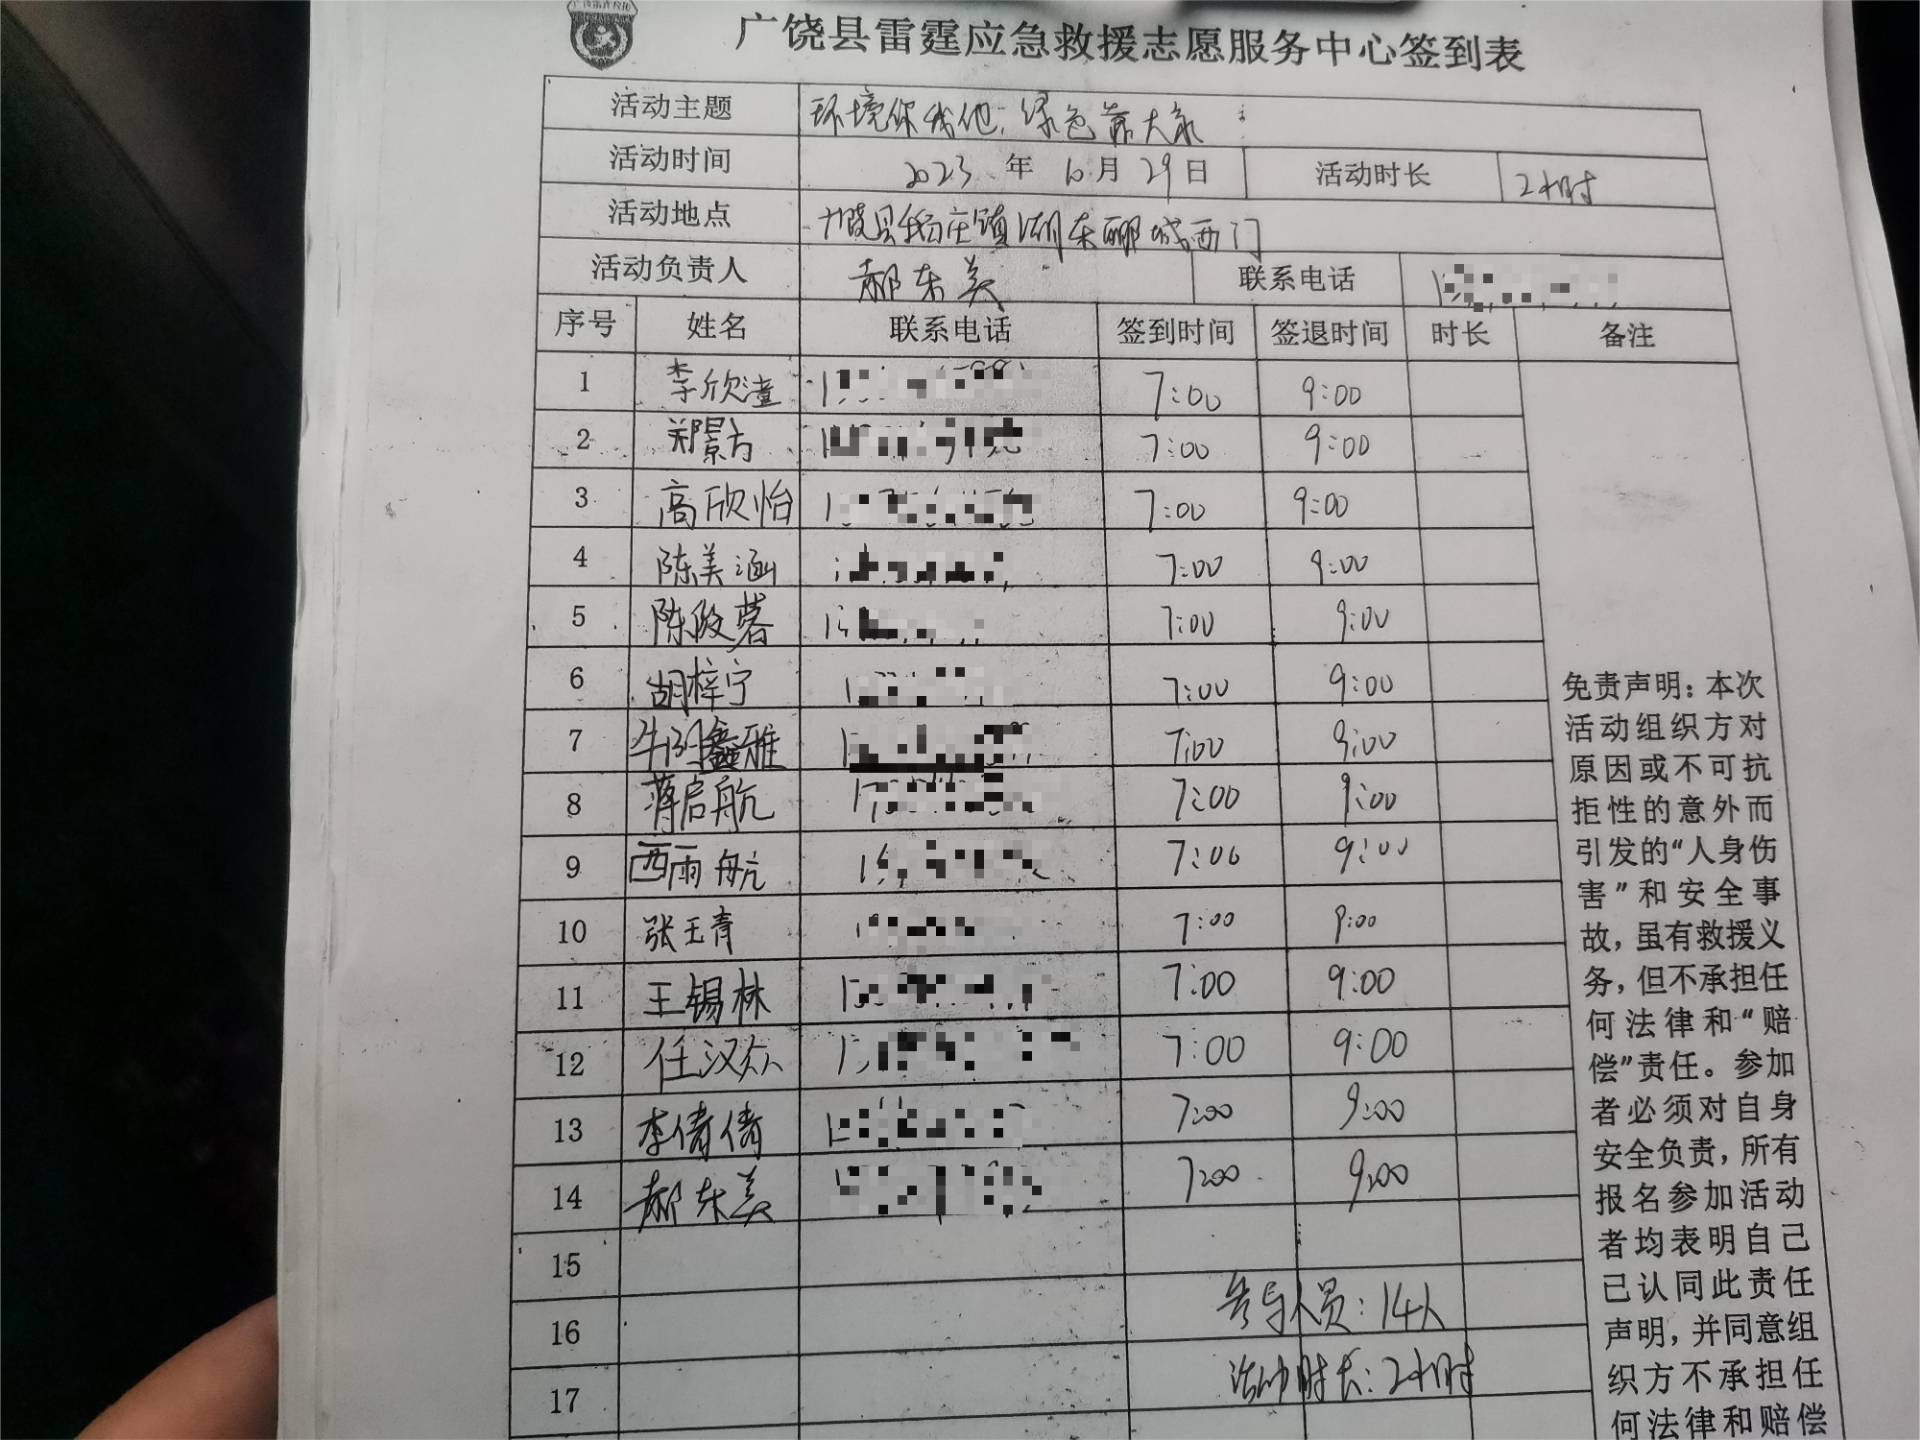 广饶县雷霆应急救援志愿服务中心签到表
活动主题 环境你我他;绿色靠大家
活动时间 2023 年 10 月 29 日 活动时长 2小时
活动地点 广饶县稻庄镇湖东郦城西门
活动负责人 郝东美 联系电话
序号 姓名 联系电话 签到时间 签退时间 时长 备注
1 李欣潼 7:00 9:00
2 郑景方 7:00 9:00
3 高欣怡 7:00 9:00
4 陈美涵 7:00 9:00
5 陈 蓉 7:00 9:00
6 胡梓宁 7:00 9:00
7 牛 鑫雅 7:00 9:00
8 蒋启航 7:00 9:00
9 西雨航 7:00 9:00
10 张玉青 7:00 9:00
11 王锡林 7:00 9:00
12 任汉众 7:00 9:00
13 李倩倩 7:00 9:00
14 郝东美 7:00 9:00
15
16 参与人员:14人
17 活动时长:2小时
免责声明:本次
活动组织方对
原因或不可抗
拒性的意外而
引发的“人身伤
害”和安全事
故,虽有救援义
务,但不承担任
何法律和“赔
偿”责任。参加
者必须对自身
安全负责,所有
报名参加活动
者均表明自己
已认同此责任
声明,并同意组
织方不承担任
何法律和赔偿